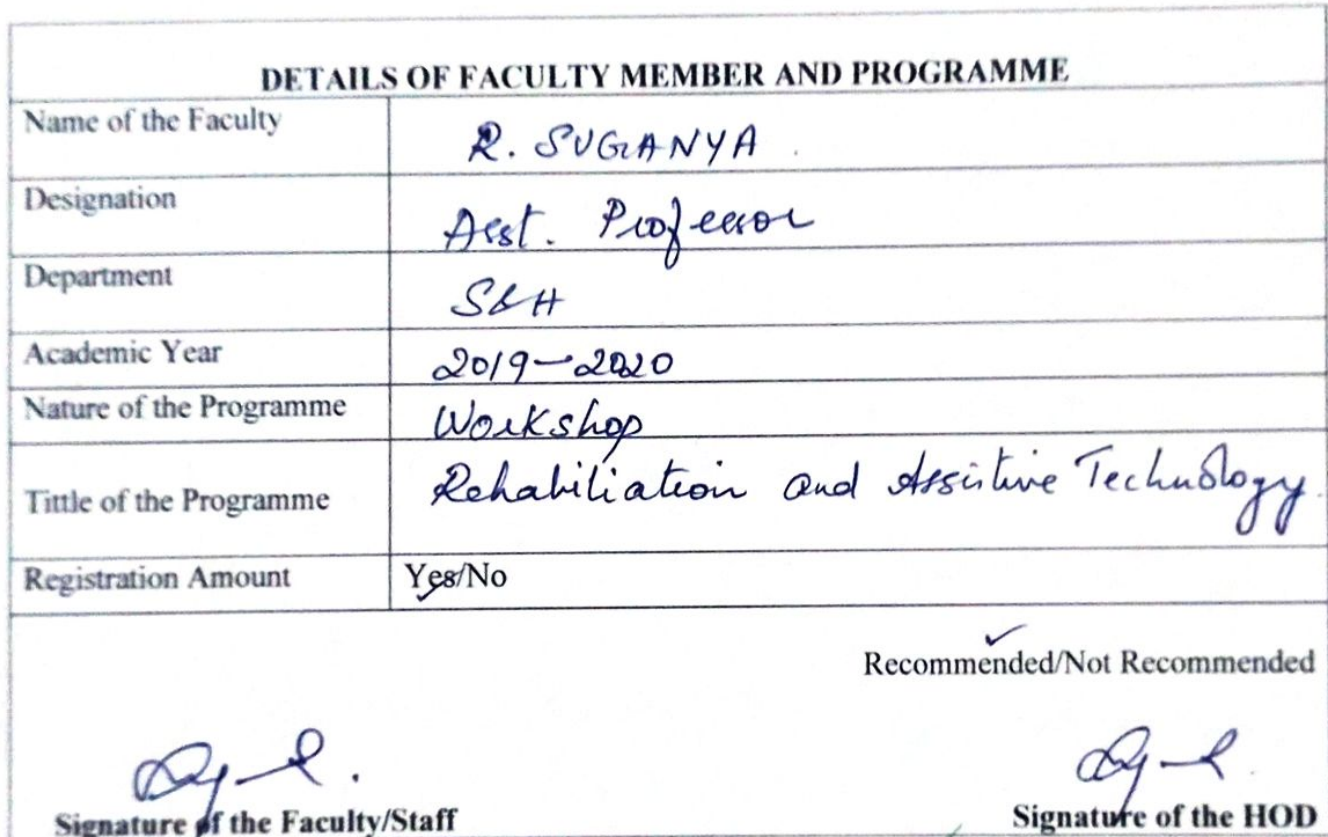 DETAILS OF FACULTY MEMBER AND PROGRAMME
Name of the Faculty R. SUGANYA
Designation Asst. Professor
Department S&H
Academic Year 2019-2020
Nature of the Programme Workshop
Tittle of the Programme Rehabiliation and Assistive Technology.
Registration Amount Yes/No
Recommended/Not Recommended
Signature of the Faculty/Staff Signature of the HOD